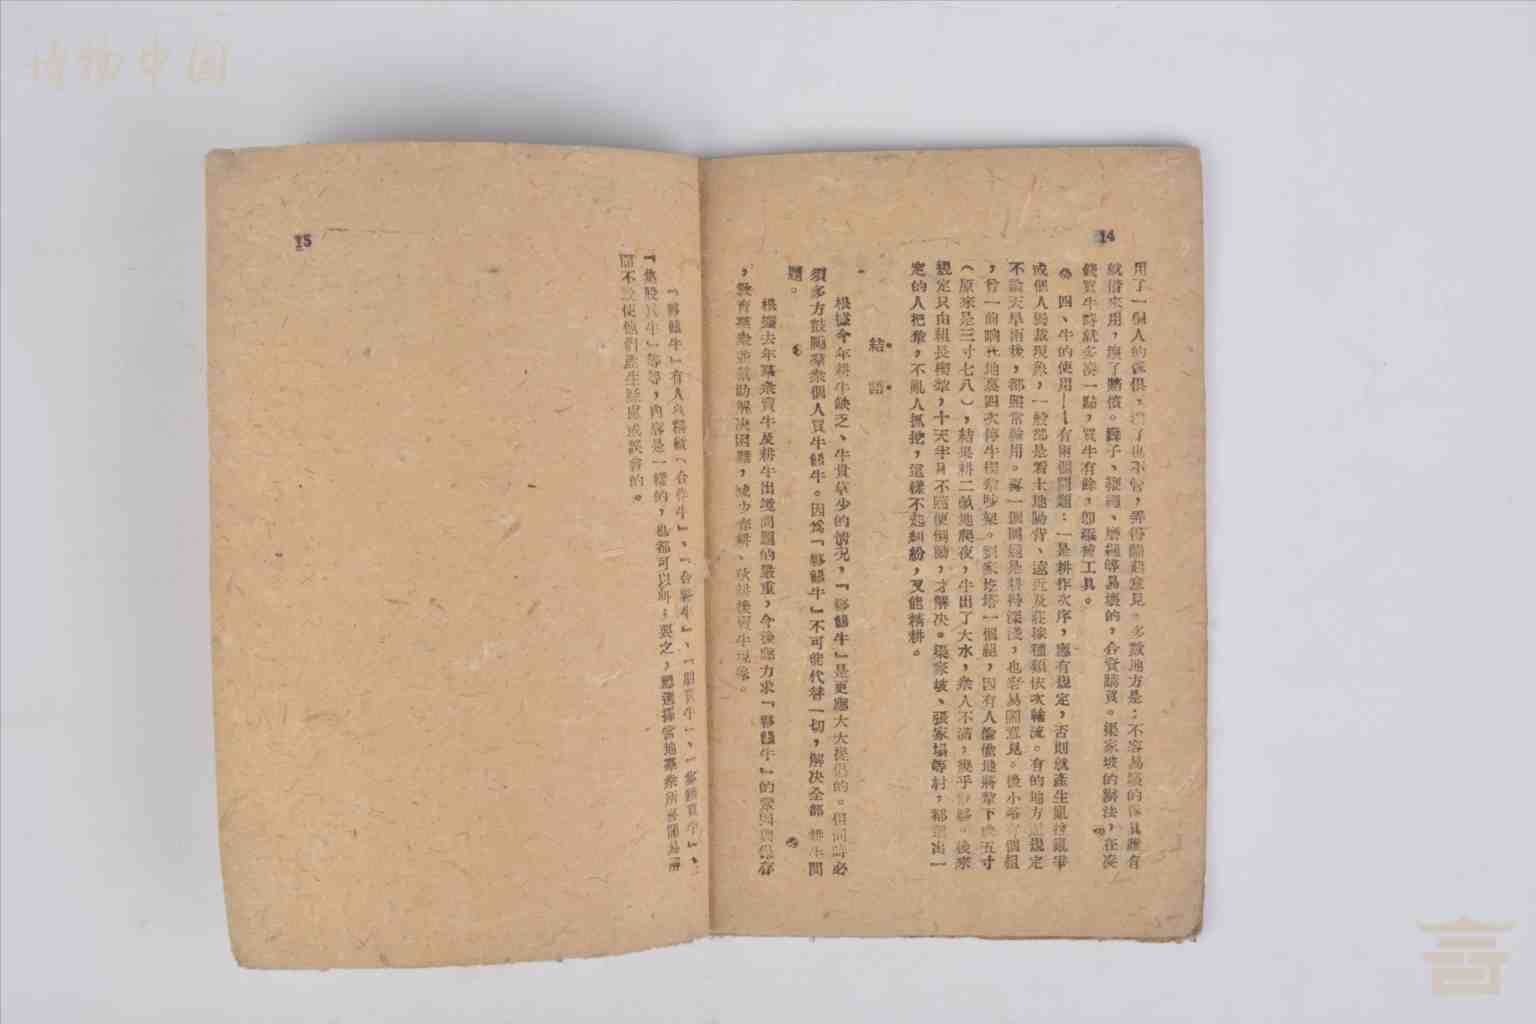 博物中国
14
用了一個人的傢俱,壞了也不管,弄得鬧起意見。多數地方是:不容易壞的傢具誰有
就借來用,壞了賠償。繩子、籠繩、磨繩等易壞的,合資購買。渠家坡的辦法,在湊
錢買牛時就多湊一點,買牛有餘,即添補工具。
四、牛的使用——有兩個問題:一是耕作次序,應有規定,否則就產生亂拉亂牽
或個人獨裁現象,一般都是看土地陽背、遠近及莊稼種類依次輪流。有的地方還規定
不論天旱雨後,都照常輪用。另一個問題是耕得深淺,也容易鬧意見。後小峪有個組
,曾一前晌在地裏四次停牛楔犂吵架。劉家圪塔一個組,因有人偷偷地將犂下楔五寸
(原來是三寸七八),結果耕二畝地爬夜,牛出了大水,衆人不滿,幾乎 夥。後來
規定只由組長楔犂,十天半月不隨便倒動,才解决。渠家坡、張家塌等村,都選出一
定的人把犂,不亂人抓挖,這樣不起糾紛,又能精耕。
結語
根據今年耕牛缺乏、牛貴草少的情况,『夥餧牛』是更應大大提倡的。但同時必
須多方鼓勵羣衆個人買牛餧牛。因爲『夥餧牛』不可能代替一切,解决全部耕牛問
題。
根據去年羣衆賣牛及耕牛出境問題的嚴重,今後應力求『夥餧牛』的鞏固與保存
,教育羣衆並幫助解决困難,減少春耕、秋耕後賣牛現象。
15
『夥餧牛』有人叫精緻『合作牛』、『合夥牛』、『朋買牛』、『夥餧買牛』、
『集股買牛』等等,內容是一樣的,也都可以叫;要之,應選擇當地羣衆所易懂易解
而不致使他們產生疑慮或誤會的。